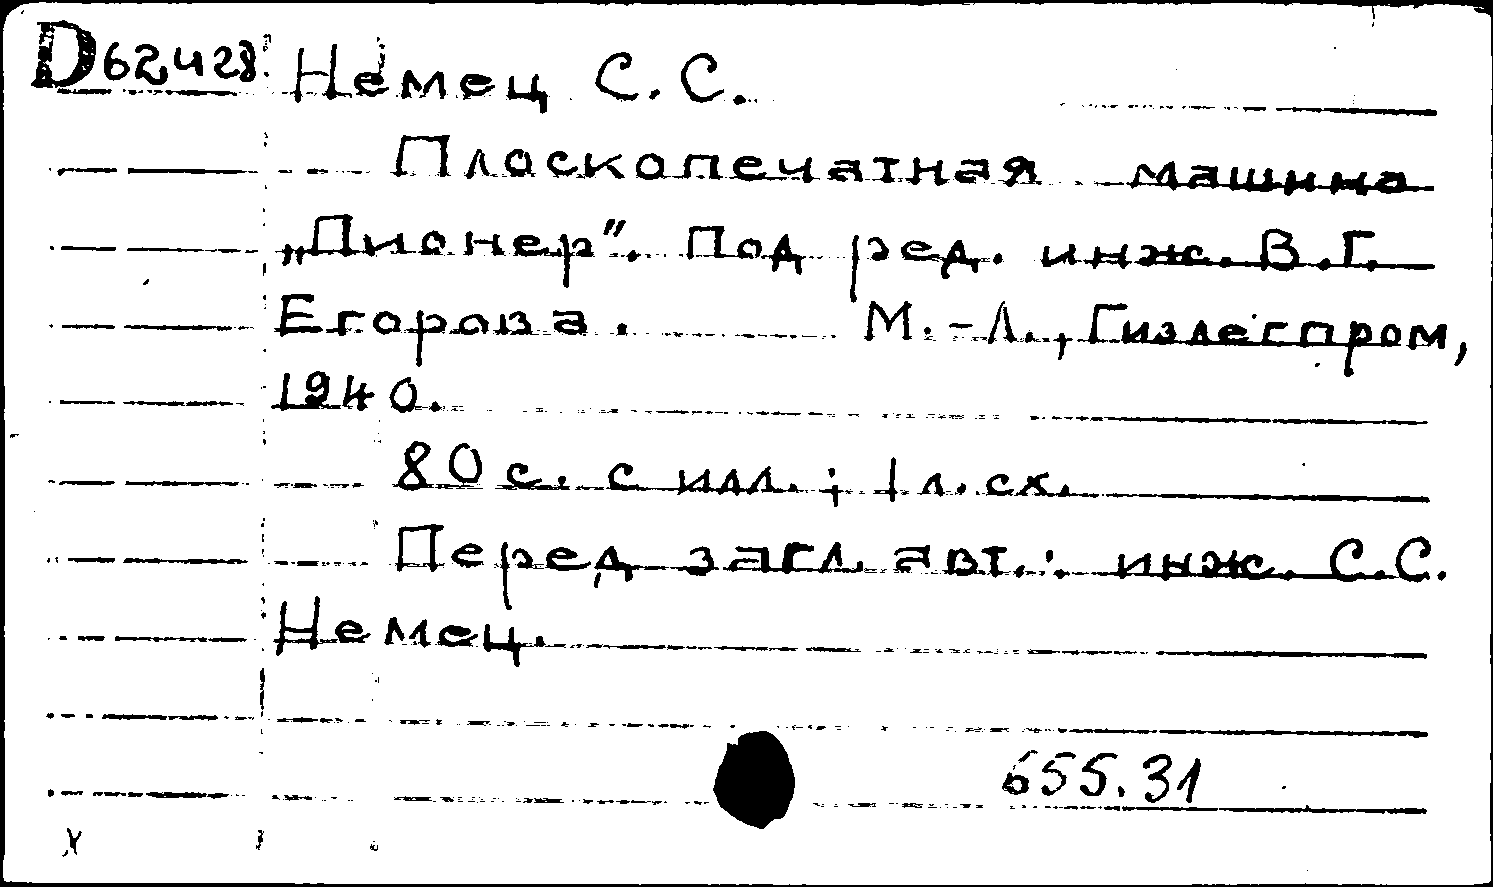 D62428 Немец С.С.
Плоскопечатная машина
„Пионер”. Под ред. инж. В.Г.
Егорова. М.-Л., Гизлегпром,
1940.
80 с. с илл.; 1 л. сх.
Перед загл. авт.: инж. С.С.
Немец.
655.31